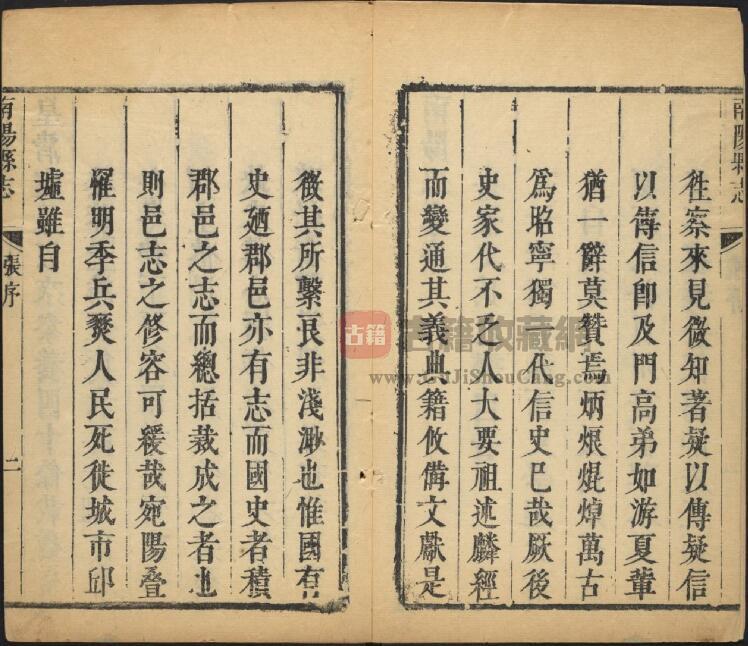 南陽縣志
徃察來見微知著疑以傳疑信
以傳信卽及門高弟如游夏輩
猶一辭莫贊焉炳烺焜煌萬古
爲昭寧獨一代信史巳哉厥後
史家代不乏人大要祖述麟經
而變通其義典籍攸備文獻是
徵其所繫㫰非淺渺也惟國有
史廼郡邑亦有志而國史者積
郡邑之志而總括裁成之者也
則邑志之修容可緩哉宛陽叠
罹明季兵燹人民死徙城市邱
墟雖自
南陽縣志
張序
二
古籍
古籍收藏網
www.GuJiShouCang.com